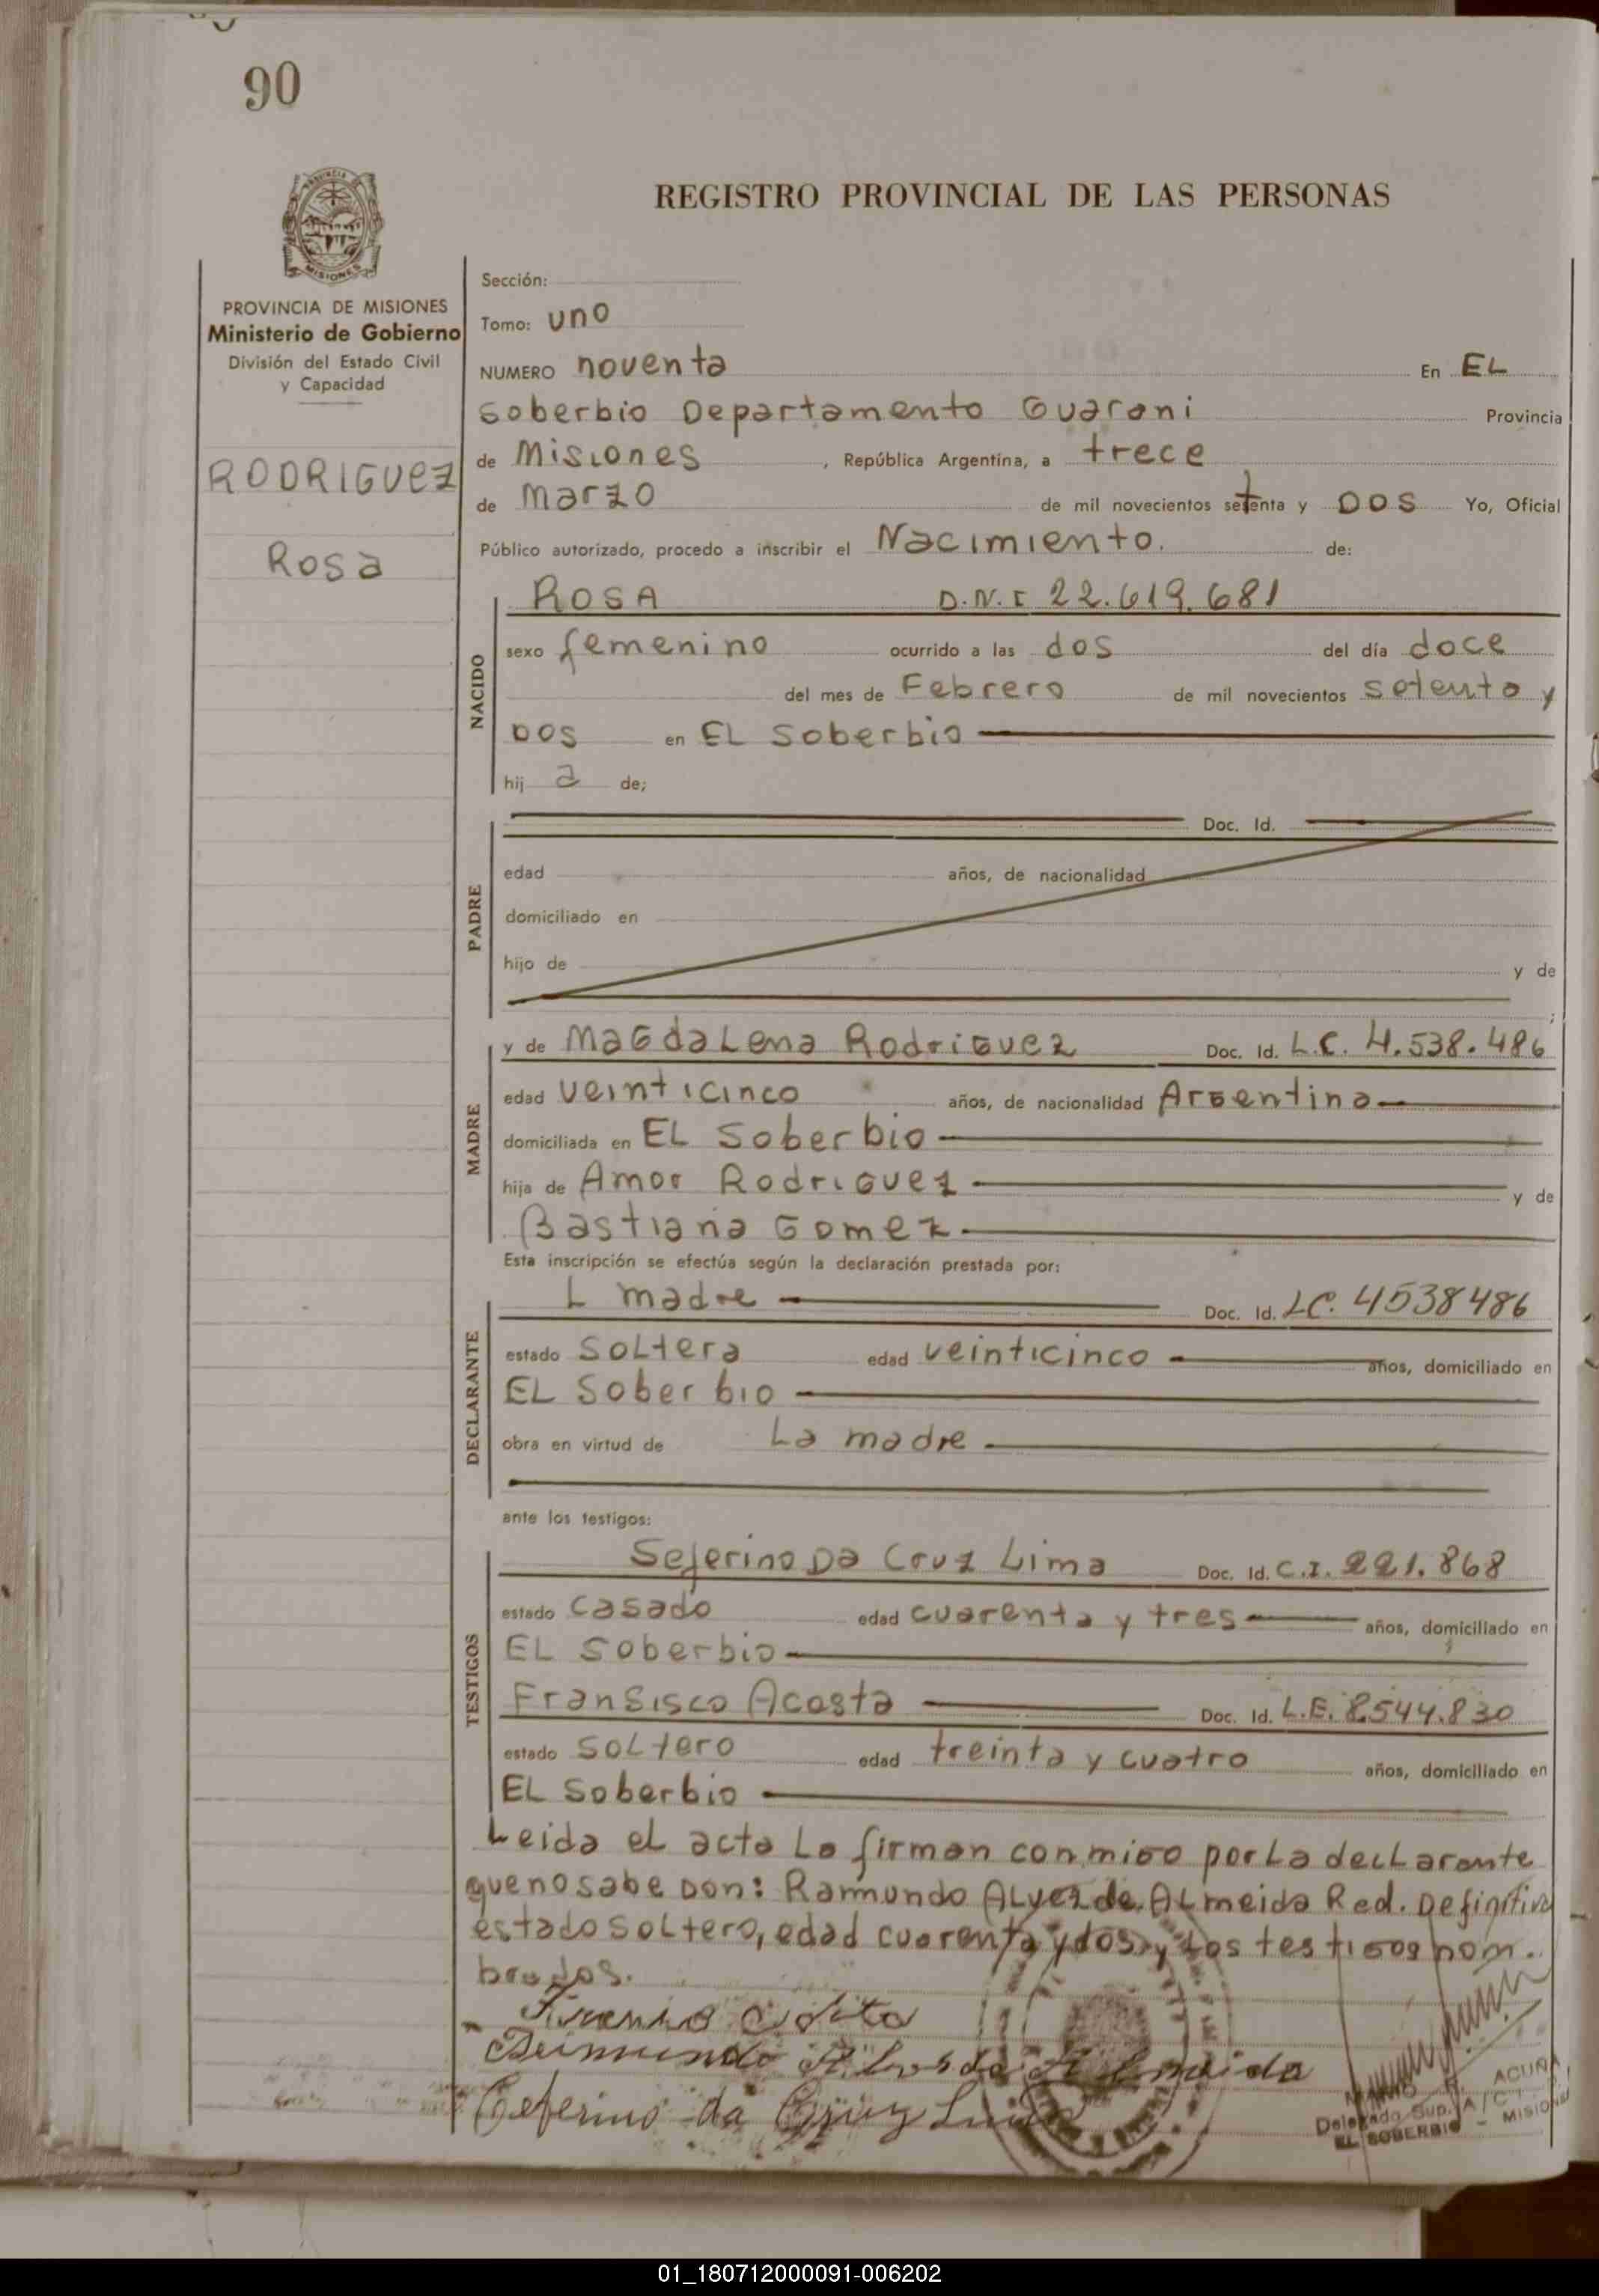 90
REGISTRO PROVINCIAL DE LAS PERSONAS
MISIONES
PROVINCIA DE MISIONES
Ministerio de Gobierno
División del Estado Civil
y Capacidad
RODRIGUEZ
Rosa
Sección:
Tomo: uno
NUMERO noventa En EL
Soberbio Departamento Guarani Provincia
de Misiones, República Argentina, a trece
de Marzo de mil novecientos setenta y DOS Yo, Oficial
Público autorizado, procedo a inscribir el Nacimiento. de:
NACIDO
ROSA D.N.I 22.619.681
sexo femenino ocurrido a las dos del día doce
del mes de Febrero de mil novecientos setenta y
DOS en EL Soberbio
hij a de;
PADRE
Doc. Id.
edad años, de nacionalidad
domiciliado en
hijo de y de
;
MADRE
y de MaGdaLena RodriGuez Doc. Id. L.C. 4.538.486
edad veinticinco años, de nacionalidad Argentina
domiciliada en EL Soberbio
hija de Amor RodriGuez y de
Bastiana Gomez
Esta inscripción se efectúa según la declaración prestada por:
DECLARANTE
L madre Doc. Id. LC. 4538486
estado SoLtera edad veinticinco años, domiciliado en
EL Soberbio
obra en virtud de La madre
ante los testigos:
TESTIGOS
Seferino Da Cruz Lima Doc. Id. C.I. 221.868
estado casado edad cuarenta y tres años, domiciliado en
EL Soberbio
Fransisco Acosta Doc. Id. L.E. 8.544.830
estado SoLtero edad treinta y cuatro años, domiciliado en
EL Soberbio
Leida el acta La firman conmigo por La decLarante
que no sabe Don: Raimundo ALvez de ALmeida Red. Definitiva
estado SoLtero, edad cuarenta y dos y Los testigos nom.
brados.
Ceferino da Cruz Lima
ACUÑA
Delegado Sup. A/C
EL SOBERBIO - MISIONES
01_180712000091-006202